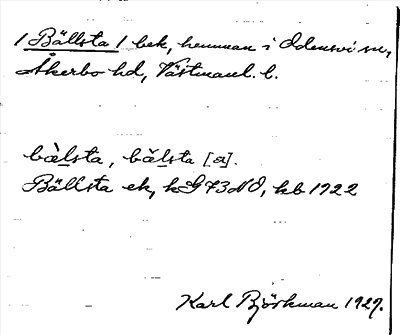 / Bällsta / bek, hemman i Odensvi sn,
Åkerbo hd, Västmanl. l.
bälsta, bälsta [a].
Bällsta ek, kG 73 NO, kb 1922
Karl Björkman 1927.